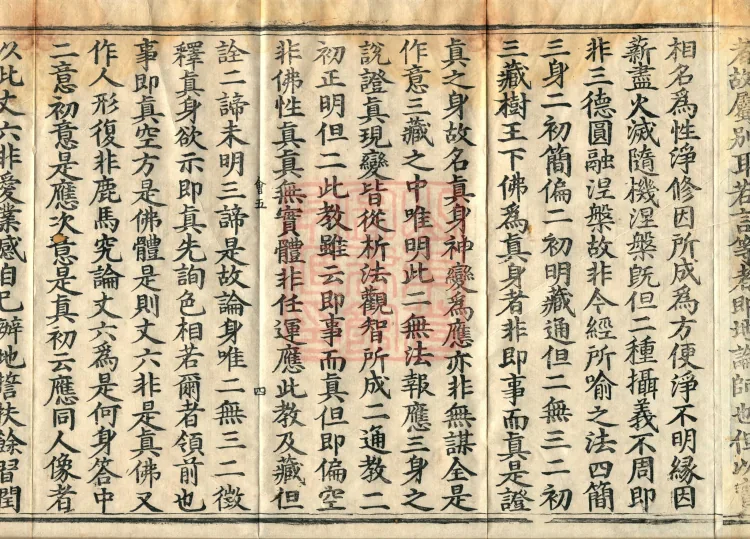 者故屬別耳若言
相名爲性淨修因所成爲方便淨不明緣因
薪盡火滅隨機涅槃旣但二種攝義不周即
非三德圓融涅槃故非今經所喻之法四簡
三身二初簡偏二初明藏通但二無三二初
三藏樹王下佛爲真身者非即事而真是證
眞之身故名眞身神變爲應亦非無謀全是
作意三藏之中唯明此二無法報應三身之
說證眞現變皆從析法觀智所成二通教二
初正明但二此教雖云即事而眞但即偏空
非佛性眞眞無實體非任運應此教及藏但
會五
四
詮二諦未明三諦是故論身唯二無三二徵
釋眞身欲示即眞先詢色相若爾者領前也
事即眞空方是佛體是則丈六非是真佛又
作人形復非鹿馬究論丈六爲是何身答中
二意初意是應次意是真初云應同人像者
以此丈六非愛業感自已辦地誓扶餘習閏